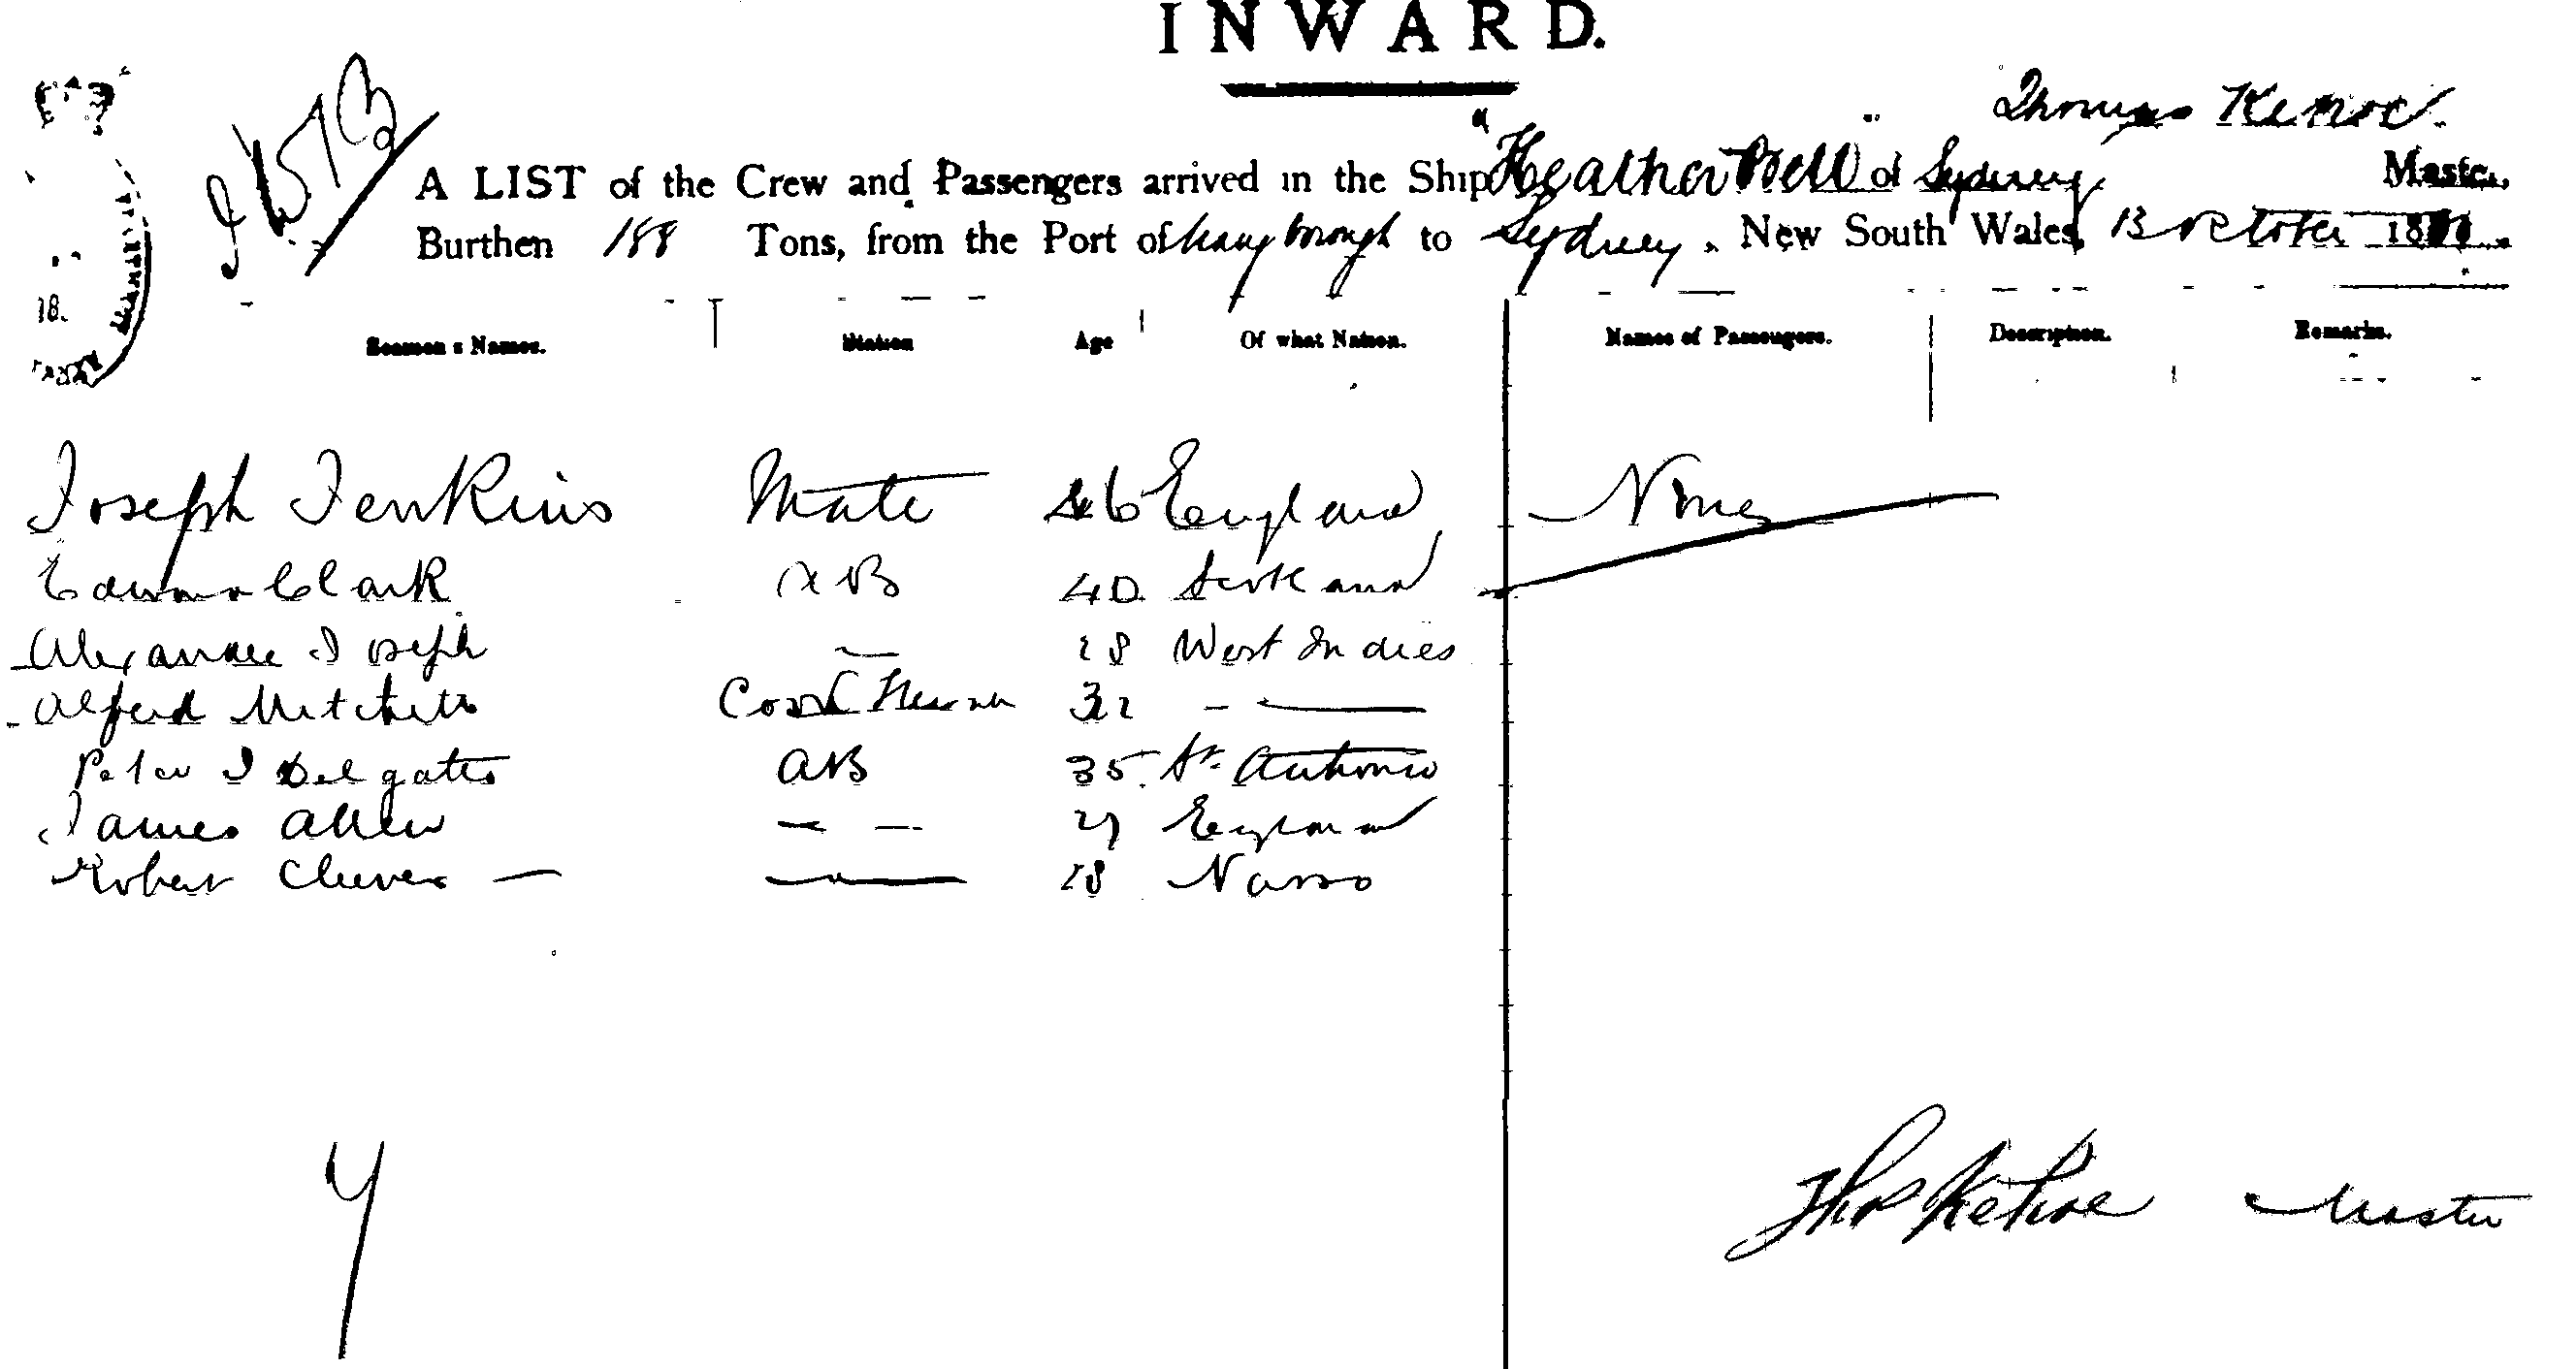 INWARD.
Thomas Kehoe
A LIST of the Crew and Passengers arrived in the Ship "Heather Bell" of Sydney Master,
Burthen 188 Tons, from the Port of Maryborough to Sydney, New South Wales, 13 October 18
18.
Seamen's Names. Station Age Of what Nation. Names of Passengers. Description. Remarks.
Joseph Jenkins Mate 46 England None
Edward Clark AB 40 Scotland
Alexander Joseph — 28 West Indies
Alfred Mitchell Cook & Steward 32 - —
Peter J Delgatto AB 35 St Antonio
James Allen — — 27 England
Robert — — 18
7
Thos Kehoe Master